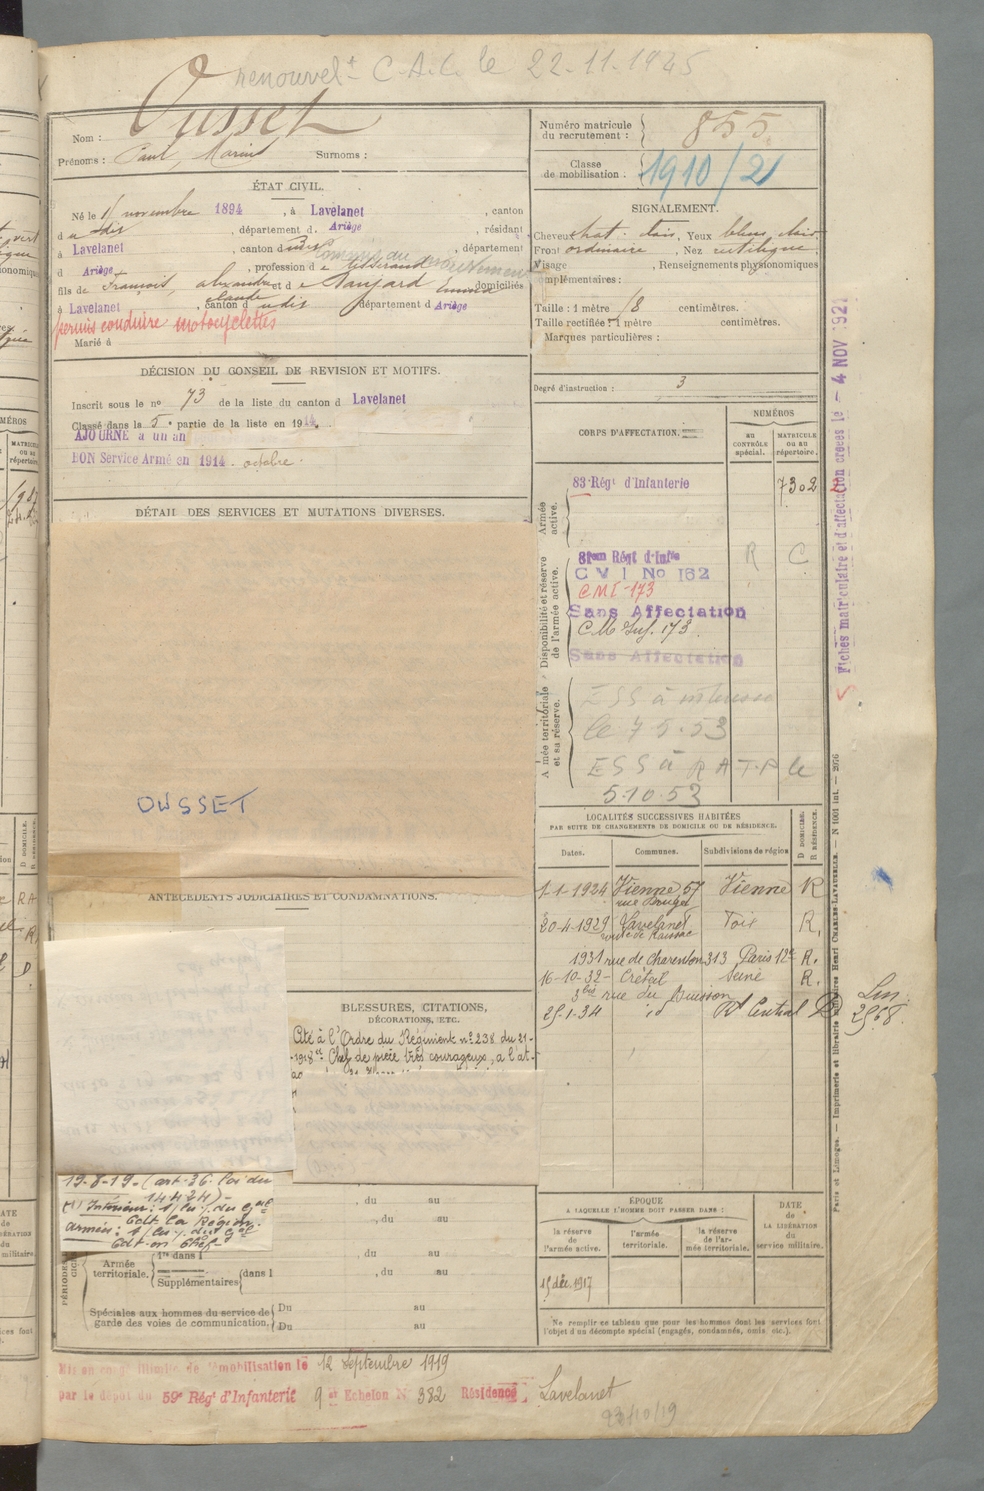 renouvelt C.A.C. le 22.11.1945
Ousset
Nom :
Prénoms : Paul, Marius Surnoms :
Numéro matricule du recrutement : 855
Classe de mobilisation : 1910/21
ÉTAT CIVIL.
Né le 11 novembre 1894, à Lavelanet, canton
d udis, département d Ariège, résidant
à Lavelanet, canton d udis, département
d Ariège, profession de tisserand
fils de François, alexandre et de domiciliés
claude
à Lavelanet, canton d udis département d Ariège
permis conduire motocyclettes
Marié à
SIGNALEMENT.
Cheveux chat: clair, Yeux bleu clair
Front ordinaire, Nez rectiligne
Visage , Renseignements physionomiques
complémentaires :
Taille : 1 mètre 18 centimètres.
Taille rectifiée : 1 mètre centimètres.
Marques particulières :
Degré d'instruction : 3
DÉCISION DU CONSEIL DE REVISION ET MOTIFS.
Inscrit sous le no 73 de la liste du canton d Lavelanet
Classé dans la 5e partie de la liste en 1914.
AJOURNÉ à un an
BON Service Armé en 1914. octobre.
DÉTAIL DES SERVICES ET MUTATIONS DIVERSES.
OUSSET
CORPS D'AFFECTATION.
NUMÉROS
AU CONTRÔLE spécial.
MATRICULE ou au répertoire.
Armée active.
83e Régt d'Infanterie 7302
Disponibilité et réserve de l'armée active.
81eme Régt d'Infie R C
C M I No 162
CMI-173
Sans Affectation
C.M. Inf. 173
Sans Affectation
Armée territoriale et sa réserve.
ESS à
le 7 5.53
ESS à RATP le
5.10.53
Fiches matriculaire et d'affectation créées le - 4 NOV 1921
LOCALITÉS SUCCESSIVES HABITÉES
PAR SUITE DE CHANGEMENTS DE DOMICILE OU DE RÉSIDENCE.
Dates. Communes. Subdivisions de région D DOMICILE. R RÉSIDENCE.
1-1-1924 Vienne 57 Vienne R
rue Bouget
20-4-1929 Lavelanet Foix R.
route de
1931 rue de Charenton 313 Paris 12e R.
16-10-32- Créteil Seine R.
3bis rue du Buisson
25 1-34 id Rt Central D
2568.
ANTÉCÉDENTS JUDICIAIRES ET CONDAMNATIONS.
BLESSURES, CITATIONS,
DÉCORATIONS, ETC.
Cité à l'Ordre du Régiment no 238 du 21-
-1918 Chef de pièce très courageux, a l'at-
19-8-19- (art. 36. loi du
14 4 24)-
(1) Intérieur: 1/lu p. du Gal
Cdt la Région.
armées: 1/lu p. du Gal
Cdt en Chef-
, du au
, du au
1re dans l , du au
Armée territoriale.
Supplémentaires dans l , du au
Spéciales aux hommes du service de garde des voies de communication. Du au
Du au
ÉPOQUE
A LAQUELLE L'HOMME DOIT PASSER DANS :
la réserve de l'armée active.
l'armée territoriale.
la réserve de l'armée territoriale.
DATE de LA LIBÉRATION du service militaire.
15 déc. 1917
Ne remplir ce tableau que pour les hommes dont les services font
l'objet d'un décompte spécial (engagés, condamnés, omis etc.).
Paris et Limoges. — Imprimerie et librairie militaires Henri CHARLES-LAVAUZELLE. — N 1001 int. — 2076
Mis en congé illimité de démobilisation le 12 Septembre 1919
par le dépôt du 59e Régt d'Infanterie 9e Echelon No 382 Résidence Lavelanet
23/10/19